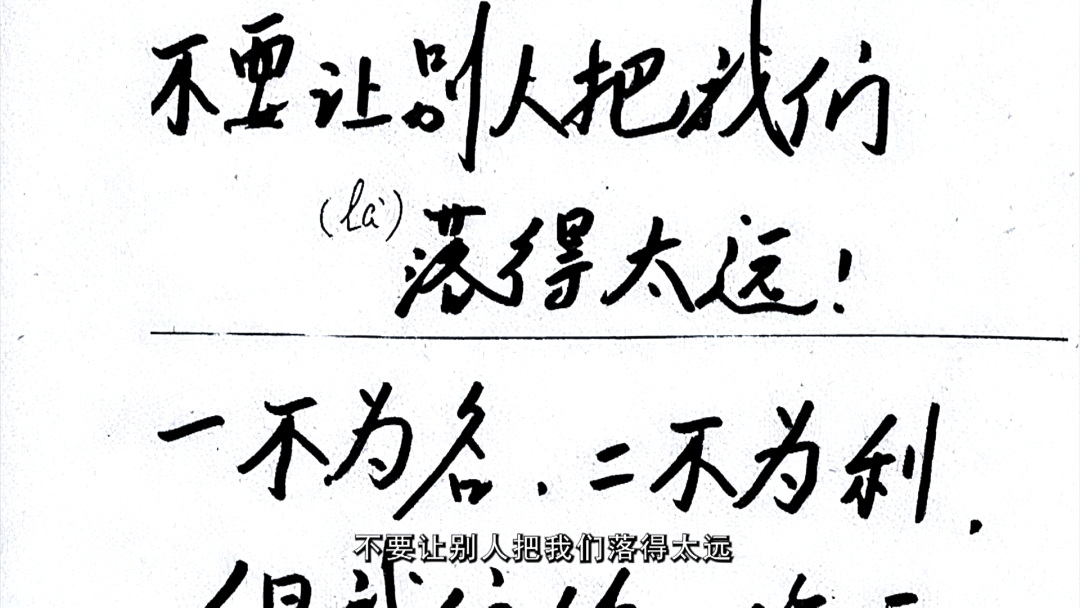 不要让别人把我们
(là)落得太远！
一不为名、二不为利，
不要让别人把我们落得太远